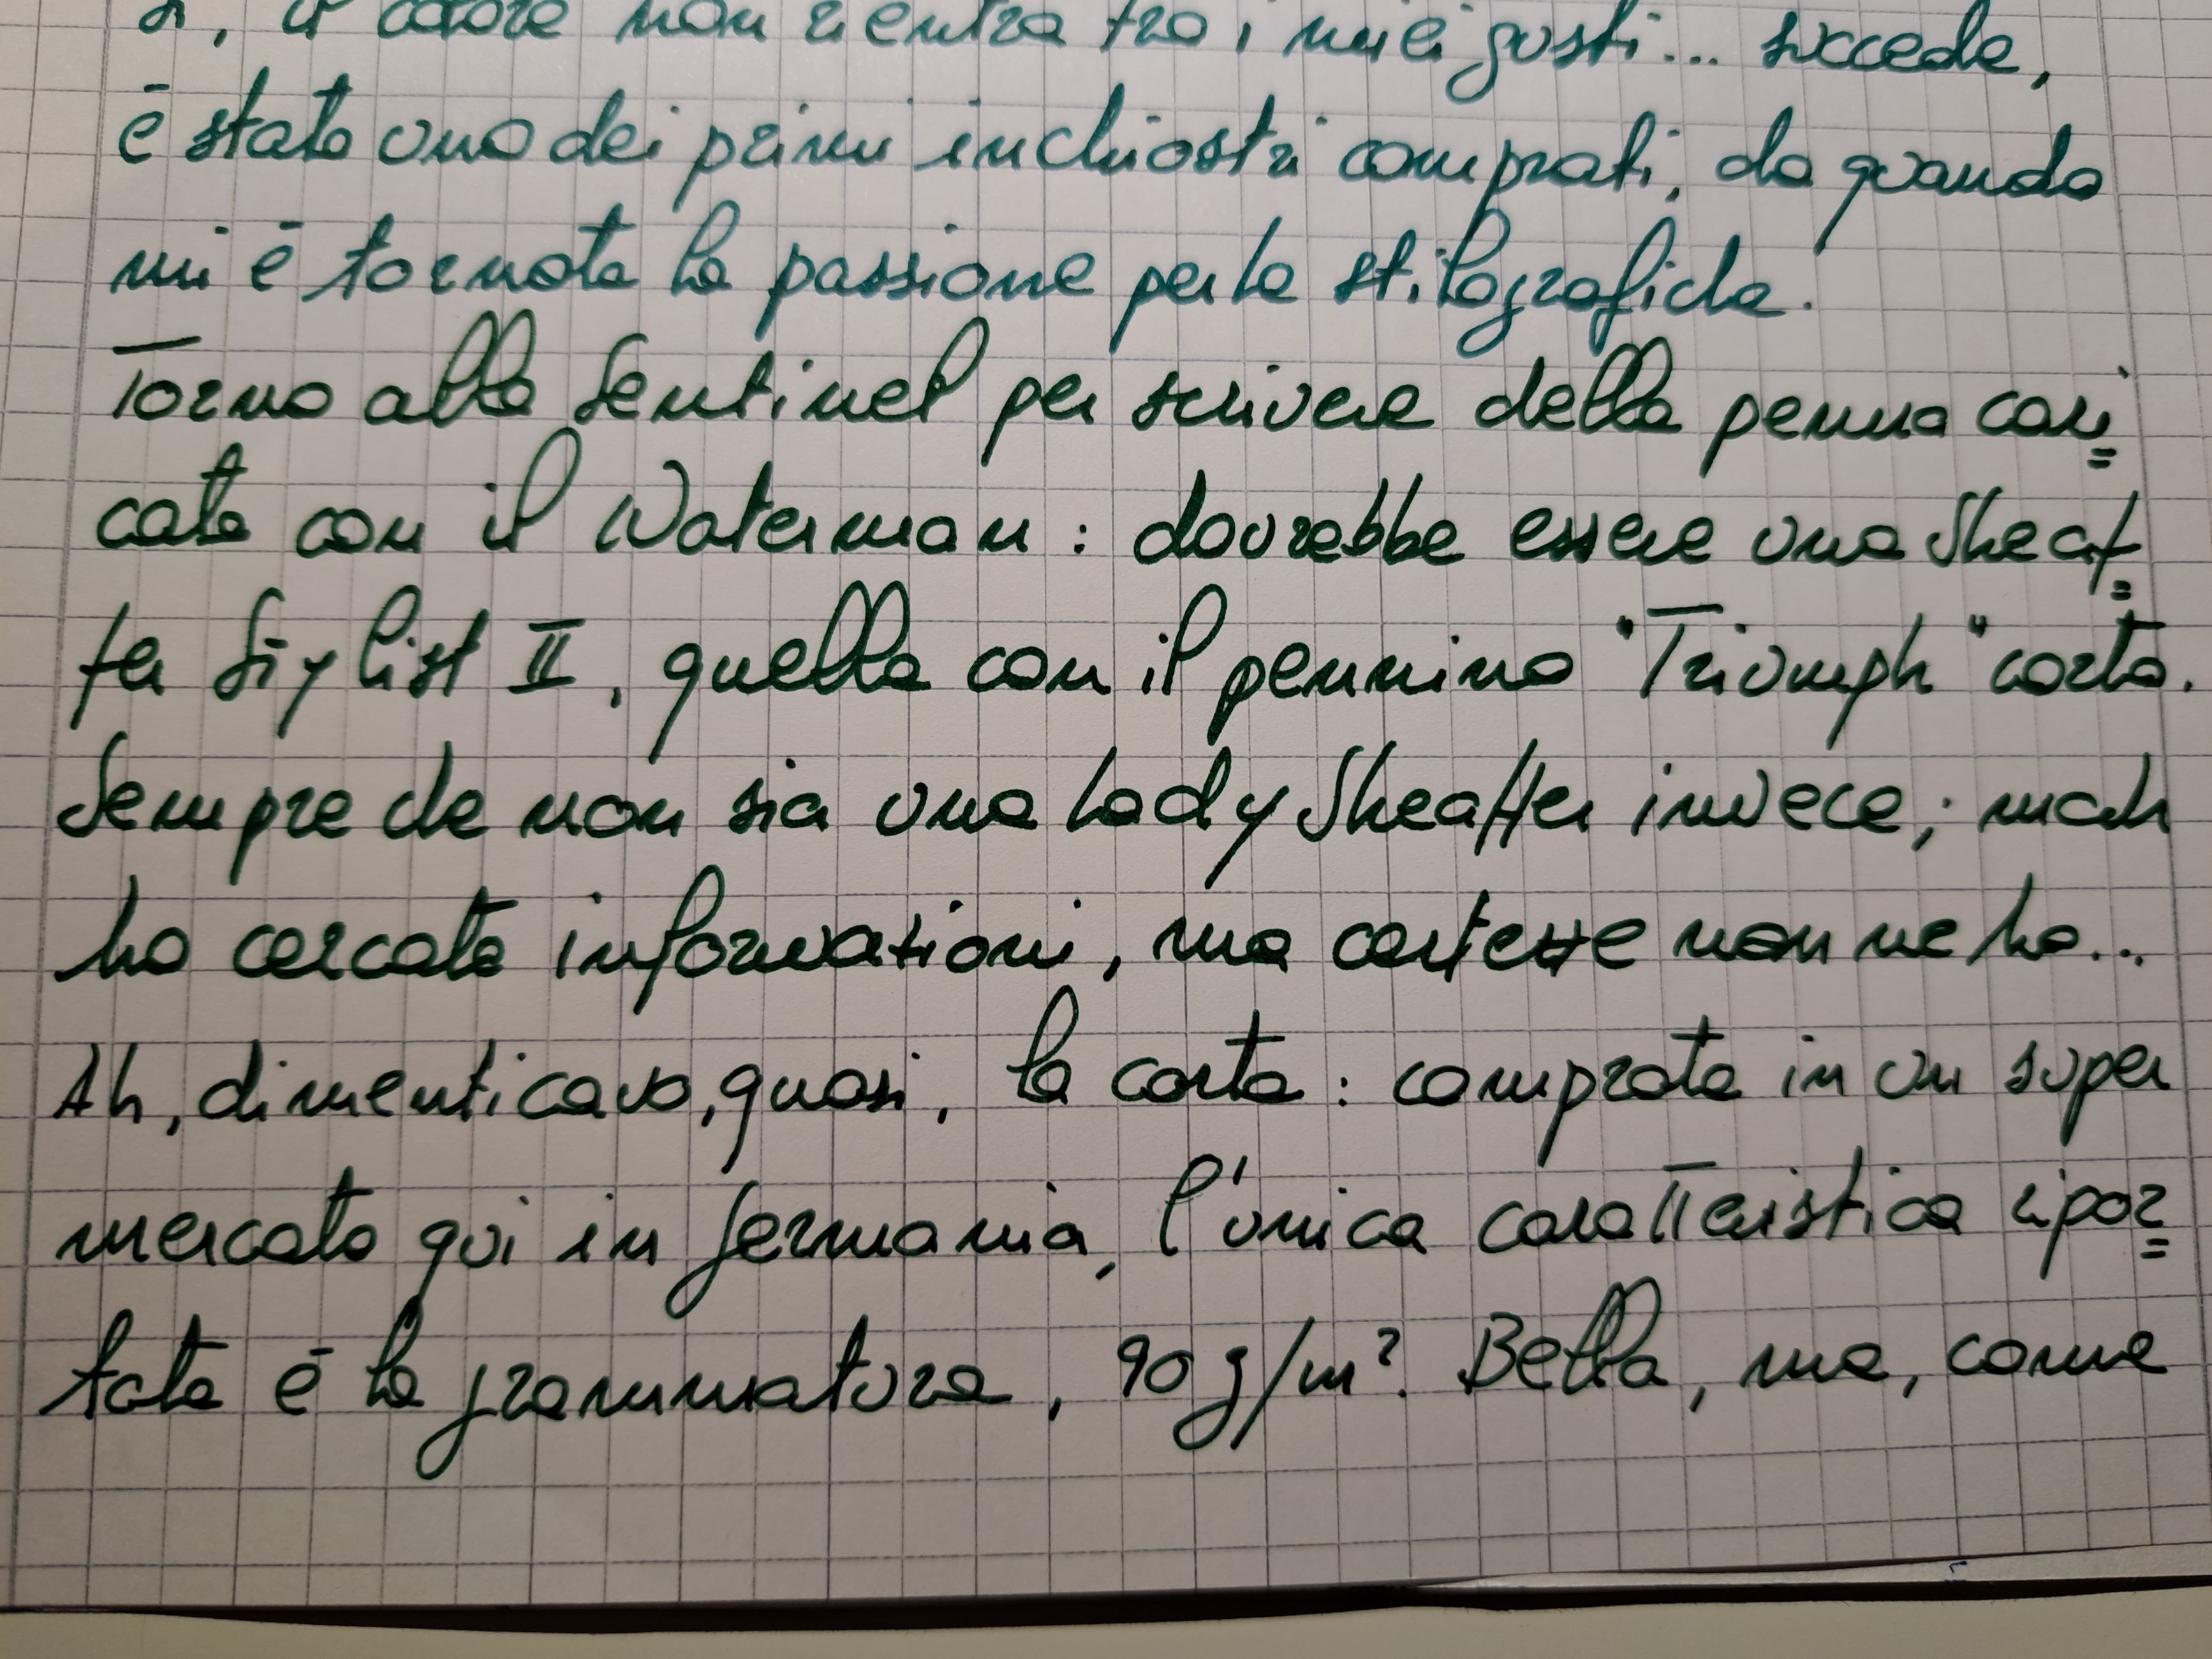 , il colore non rientra tra i miei gusti... succede,
è stato uno dei primi inchiostri comprati, da quando
mi è tornata la passione per le stilografiche.
Torno alla Sentinel per scrivere della penna cari=
cata con il Waterman: dovrebbe essere una Sheaf=
fer Stylist II, quella con il pennino "Triumph" corto.
Sempre che non sia una Lady Sheaffer invece; mah
ho cercato informazioni, ma certezze non ne ho...
Ah, dimenticavo, quasi, la carta: comprata in un super
mercato qui in Germania, l'unica caratteristica ripor=
tata è la grammatura, 90 g/m². Bella, ma, come